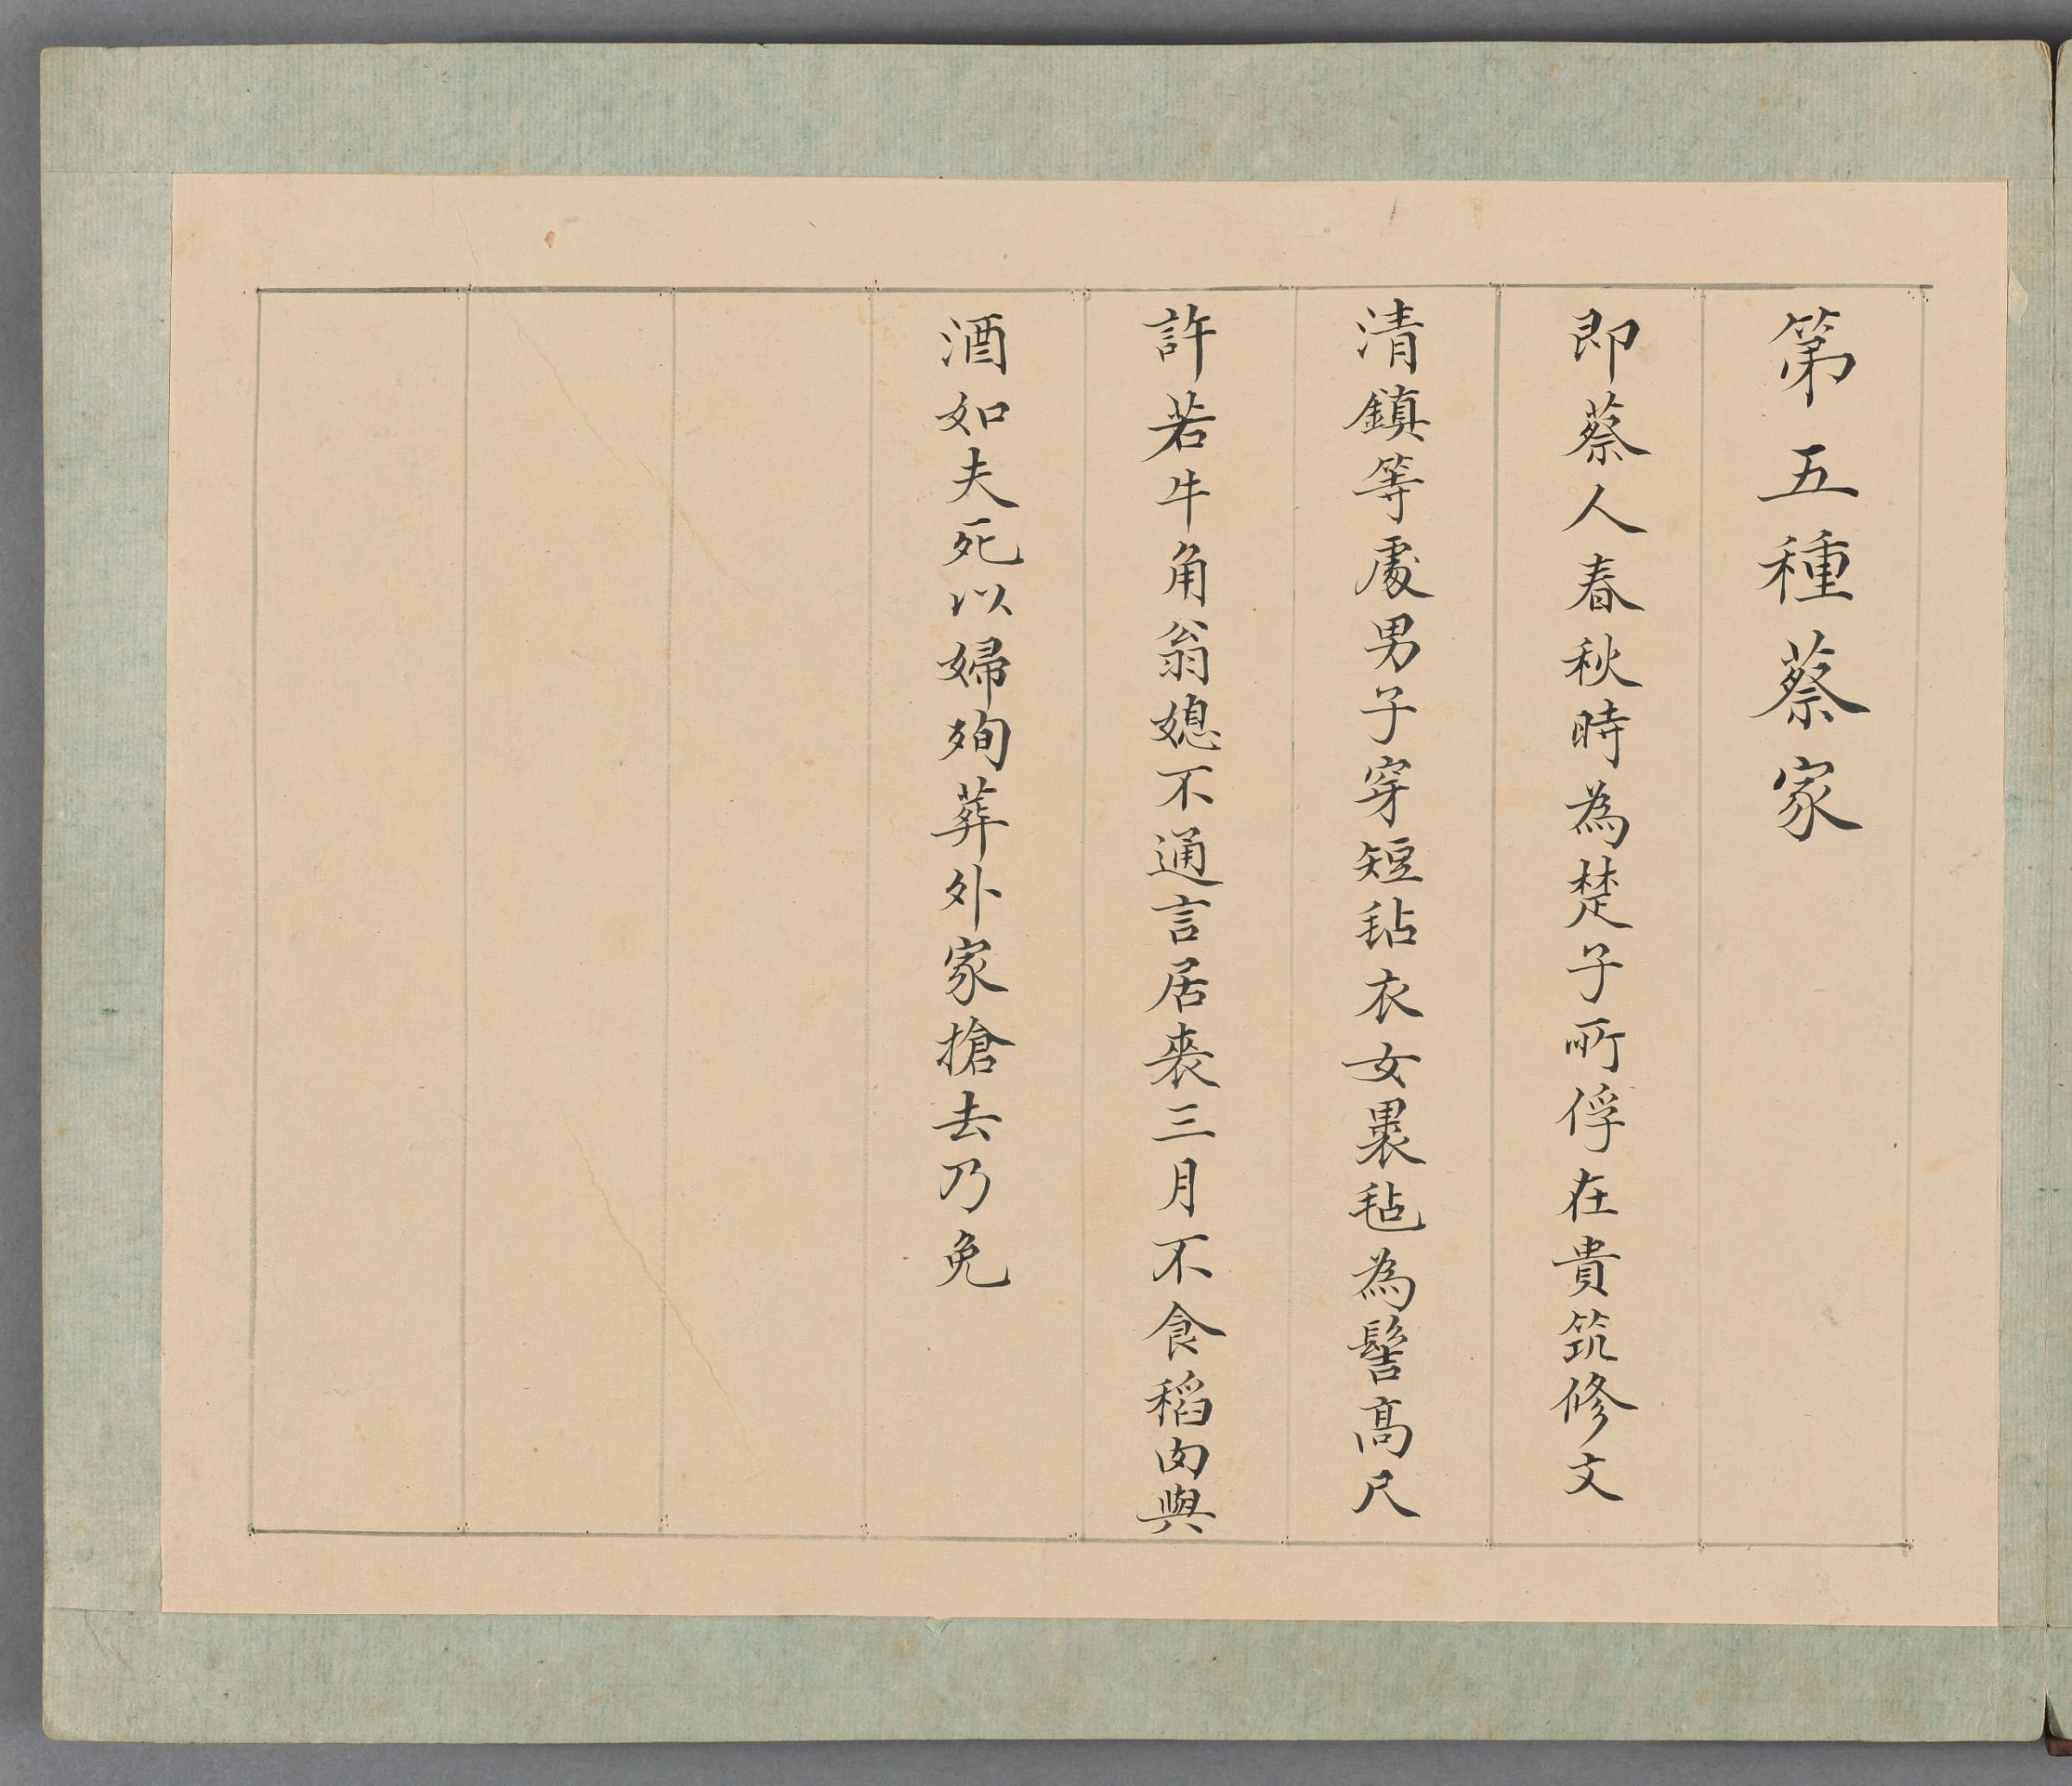 第五種蔡家
即蔡人春秋時為楚子所俘在貴筑修文
清鎮等處男子穿短毡衣女裹毡為髻高尺
許若牛角翁媳不通言居喪三月不食稻肉與
酒如夫死以婦殉葬外家搶去乃免